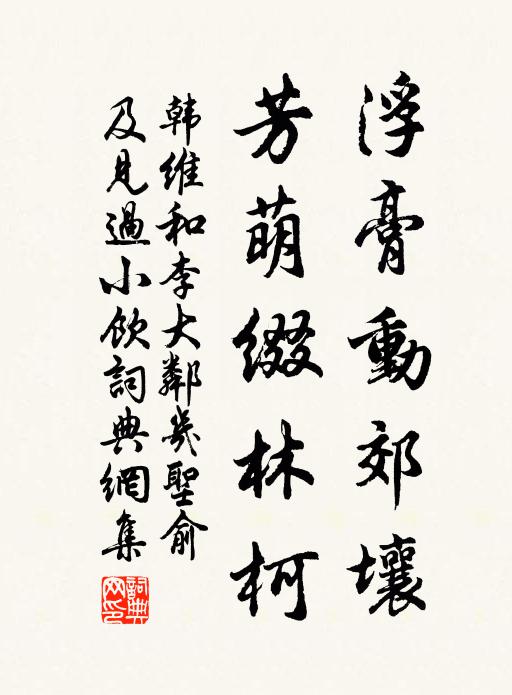 浮膏動郊壤
芳萌綴林柯
韩维和李大鄰幾聖俞
及見過小飲詞典網集
詞典網印